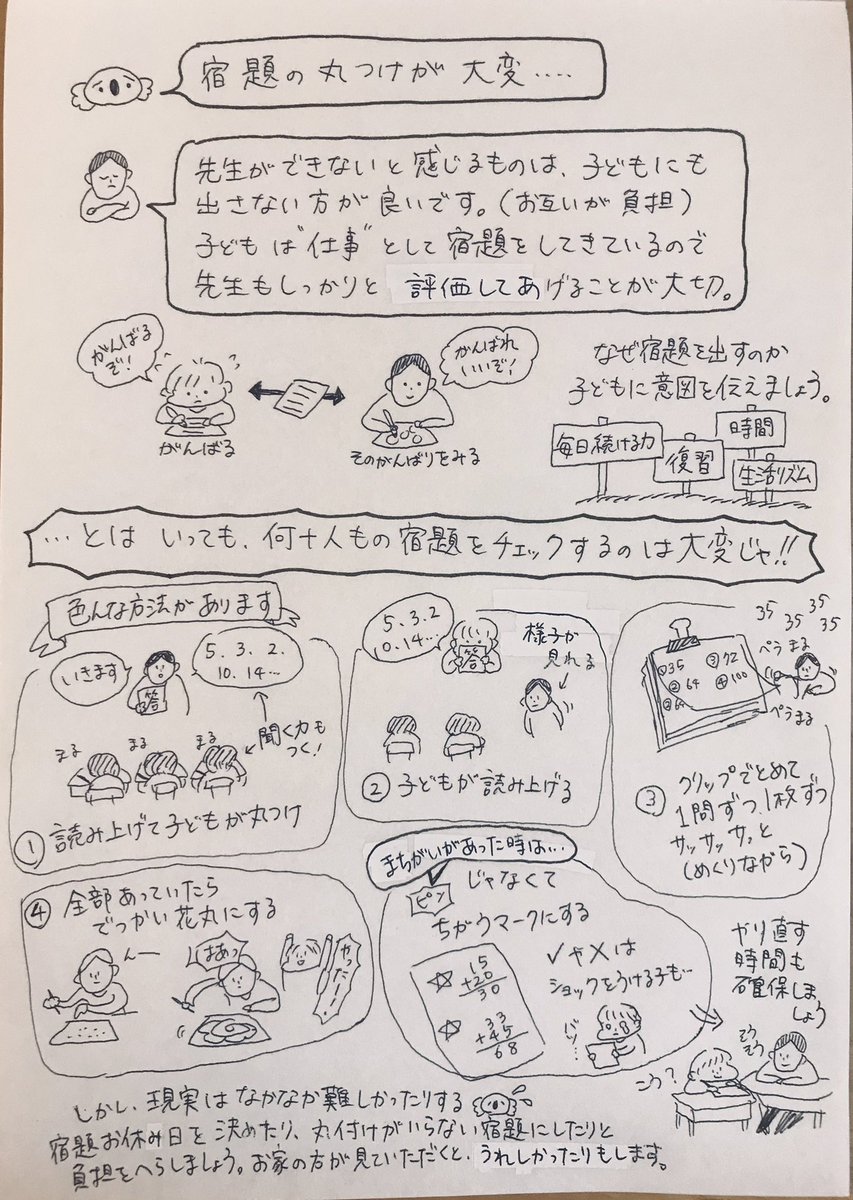 宿題の丸つけが 大変‥‥
先生ができないと感じるものは、子どもにも
出さない方が良いです。(お互いが負担)
子どもは"仕事"として宿題をしてきているので
先生もしっかりと 評価してあげることが大切。
がんばる
ぞ!
がんばる
がんばれ
いいぞ!
そのがんばりをみる
なぜ宿題を出すのか
子どもに意図を伝えましょう。
毎日続ける力
復習
時間
生活リズム
…とは いっても、何十人もの宿題をチェックするのは大変じゃ!!
色んな方法があります
いきます
答
5. 3. 2.
10. 14…
聞く力も
つく!
まる
まる
まる
① 読み上げて子どもが丸つけ
5. 3. 2
10. 14…
答
様子が
見れる
② 子どもが読み上げる
35 35 35 35
①35 ③72
②64 ④100
ぺら まる
ぺら まる
③ クリップでとめて
1問ずつ、1枚ずつ
サッサッサッと
(めくりながら)
④ 全部あっていたら
でっかい花丸にする
んー
はあっ
やったー!
まちがいがあった時は…
ピン
じゃなくて
ちがうマークにする
15
+20
30
33
+45
68
✓や×は
ショックをうける子も…
やり直す
時間も
確保しま
しょう
こう?
そうそう
しかし、現実はなかなか難しかったりする
宿題お休み日を決めたり、丸付けがいらない宿題にしたりと
負担をへらしましょう。お家の方が見ていただくと、うれしかったりもします。